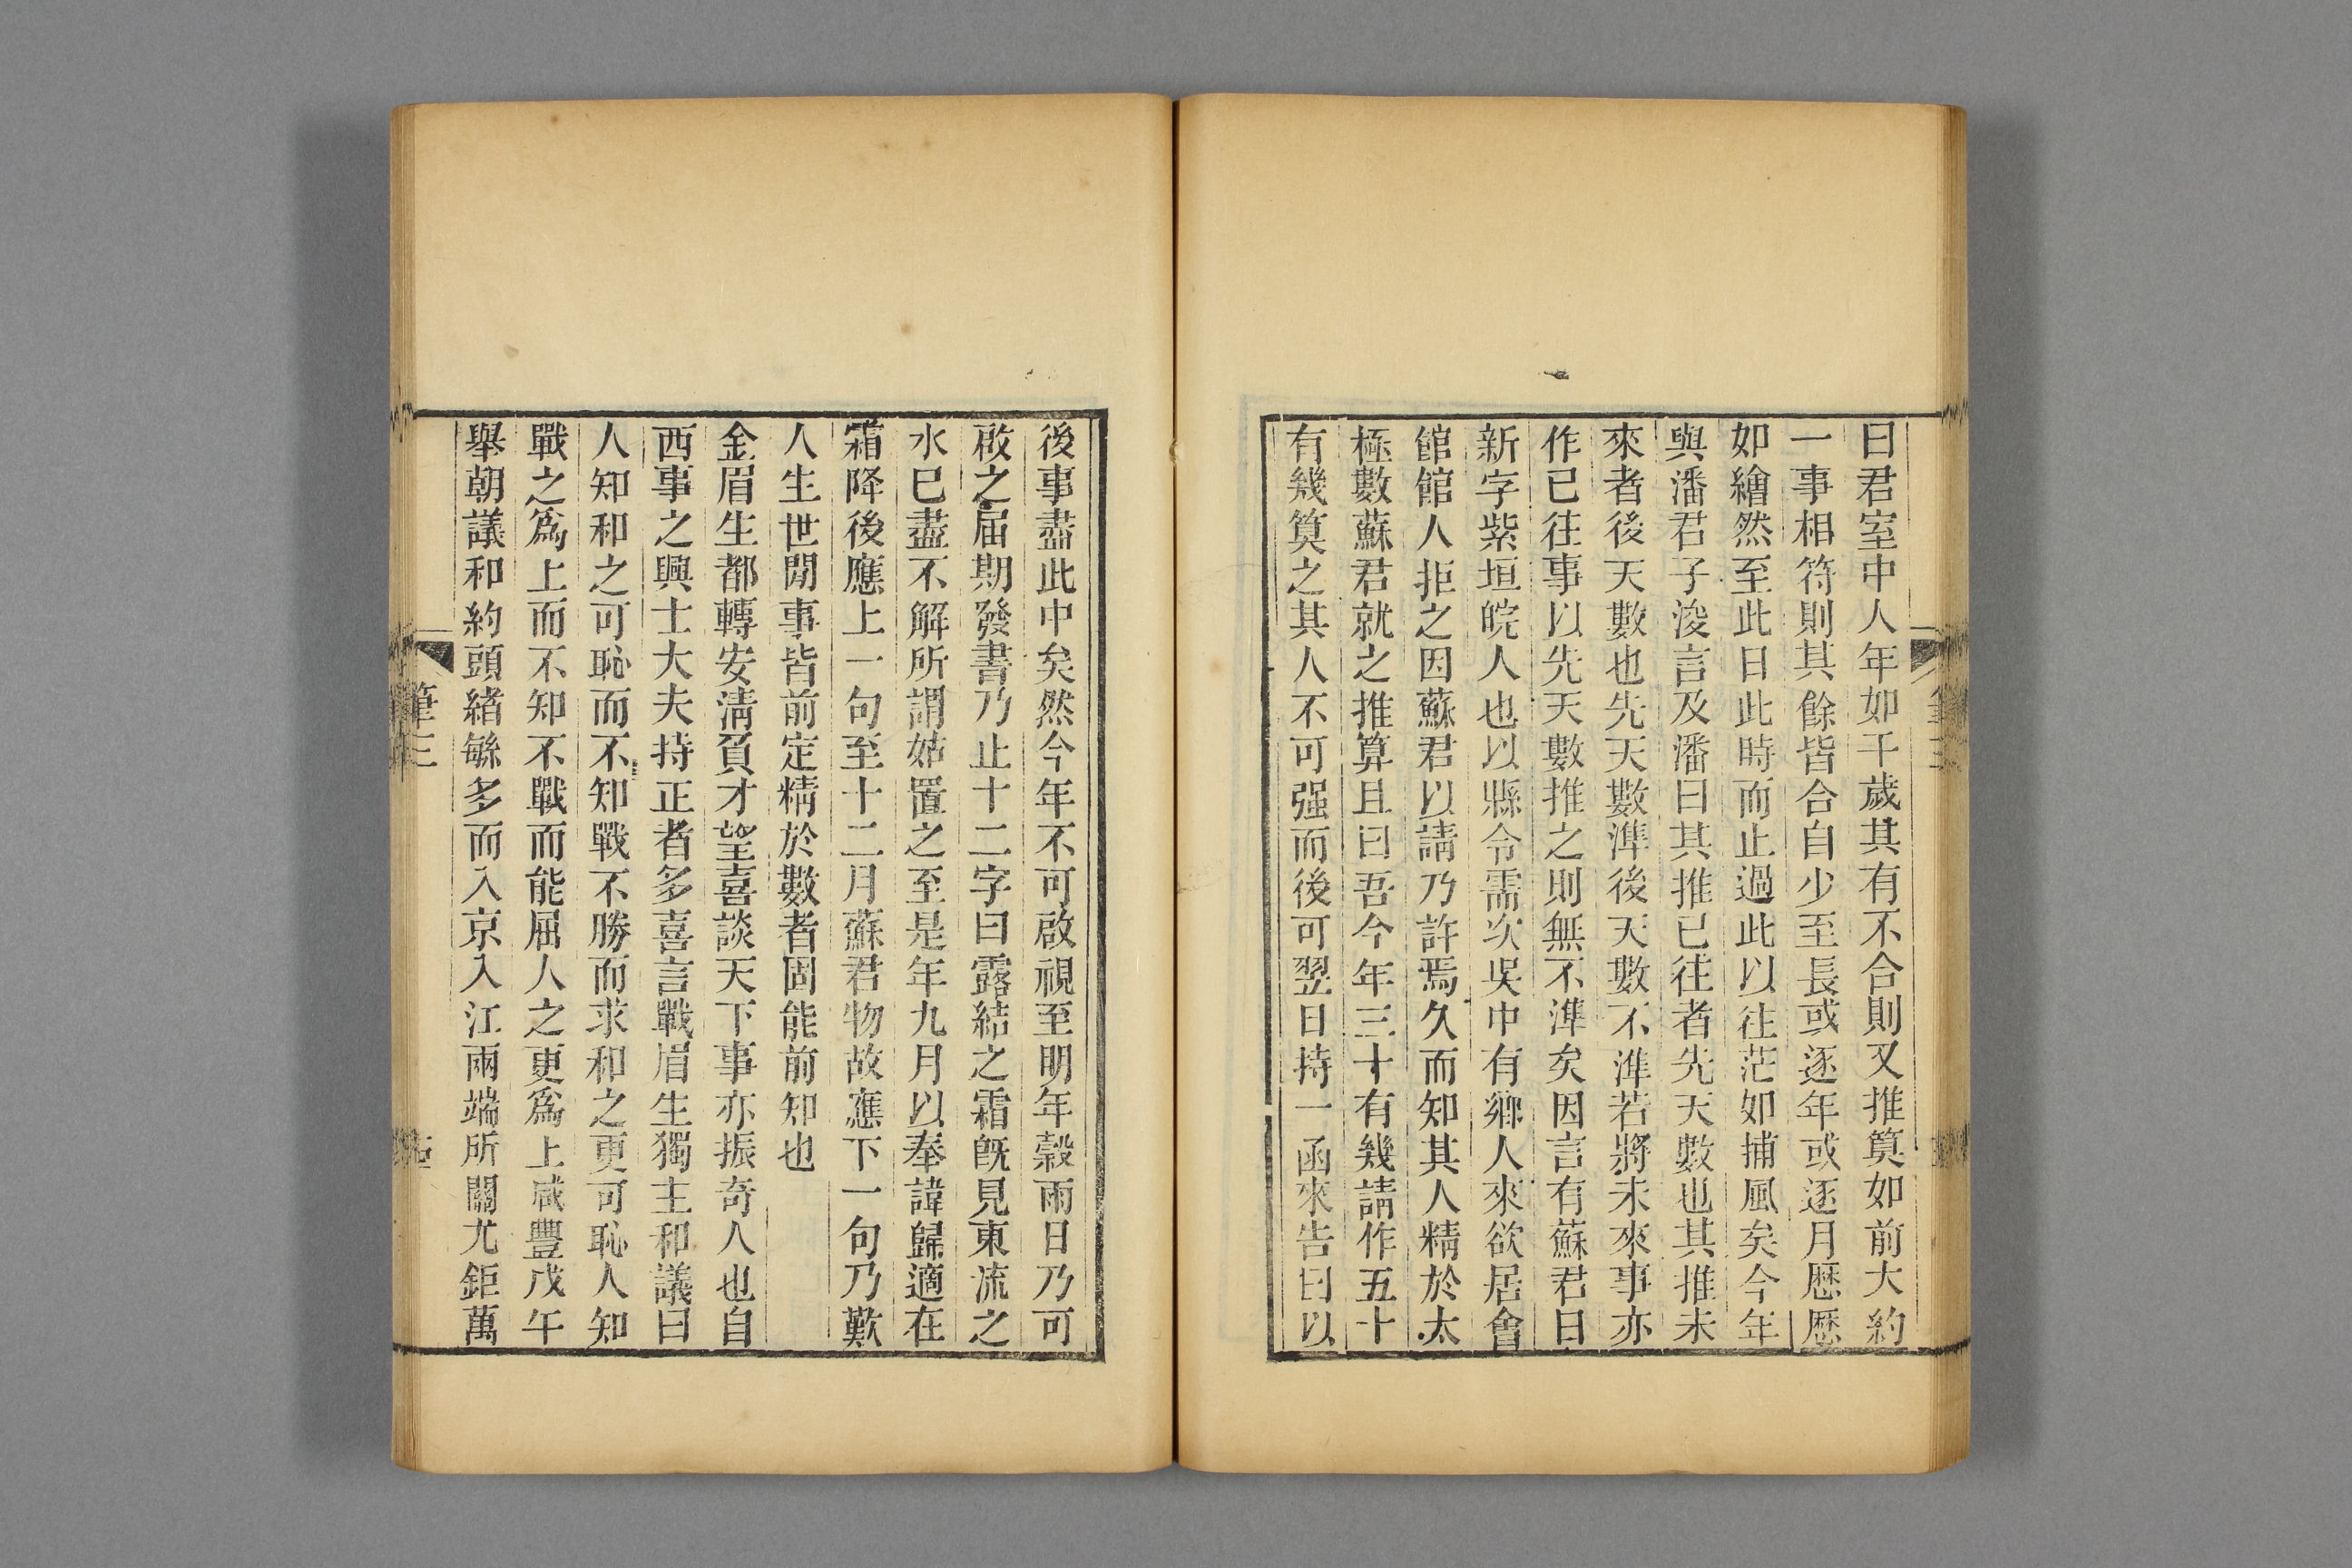 曰君室中人年如干歲其有不合則又推算如前大約
一事相符則其餘皆合自少至長或逐年或逐月歷歷
如繪然至此日此時而止過此以往茫如捕風矣今年
與潘君子浚言及潘曰其推已往者先天數也其推未
來者後天數也先天數準後天數不準若將未來事亦
作已往事以先天數推之則無不準矣因言有蘇君日
新字紫垣皖人也以縣令需次吳中有鄉人來欲居會
館館人拒之因蘇君以請乃許焉久而知其人精於太
極數蘇君就之推算且曰吾今年三十有幾請作五十
有幾算之其人不可强而後可翌日持一函來告曰以
後事盡此中矣然今年不可啟視至明年穀雨日乃可
啟之屆期發書乃止十二字曰露結之霜旣見東流之
水已盡不解所謂姑置之至是年九月以奉諱歸適在
霜降後應上一句至十二月蘇君物故應下一句乃歎
人生世閒事皆前定精於數者固能前知也
金眉生都轉安淸負才望喜談天下事亦振奇人也自
西事之興士大夫持正者多喜言戰眉生獨主和議曰
人知和之可恥而不知戰不勝而求和之更可恥人知
戰之爲上而不知不戰而能屈人之更爲上咸豐戊午
舉朝議和約頭緒緐多而入京入江兩端所關尤鉅萬
筆三